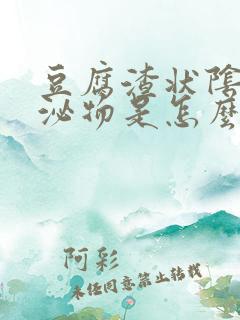 豆腐渣狀陰
泌物是怎麼
阿彩
未经同意禁止转载